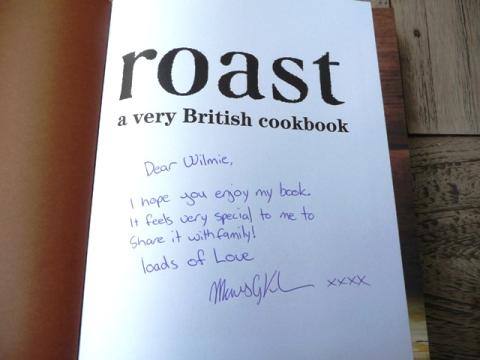 roast
a very British cookbook
Dear Wilmie,
I hope you enjoy my book.
It feels very special to me to
Share it with family!
loads of Love
xxxx